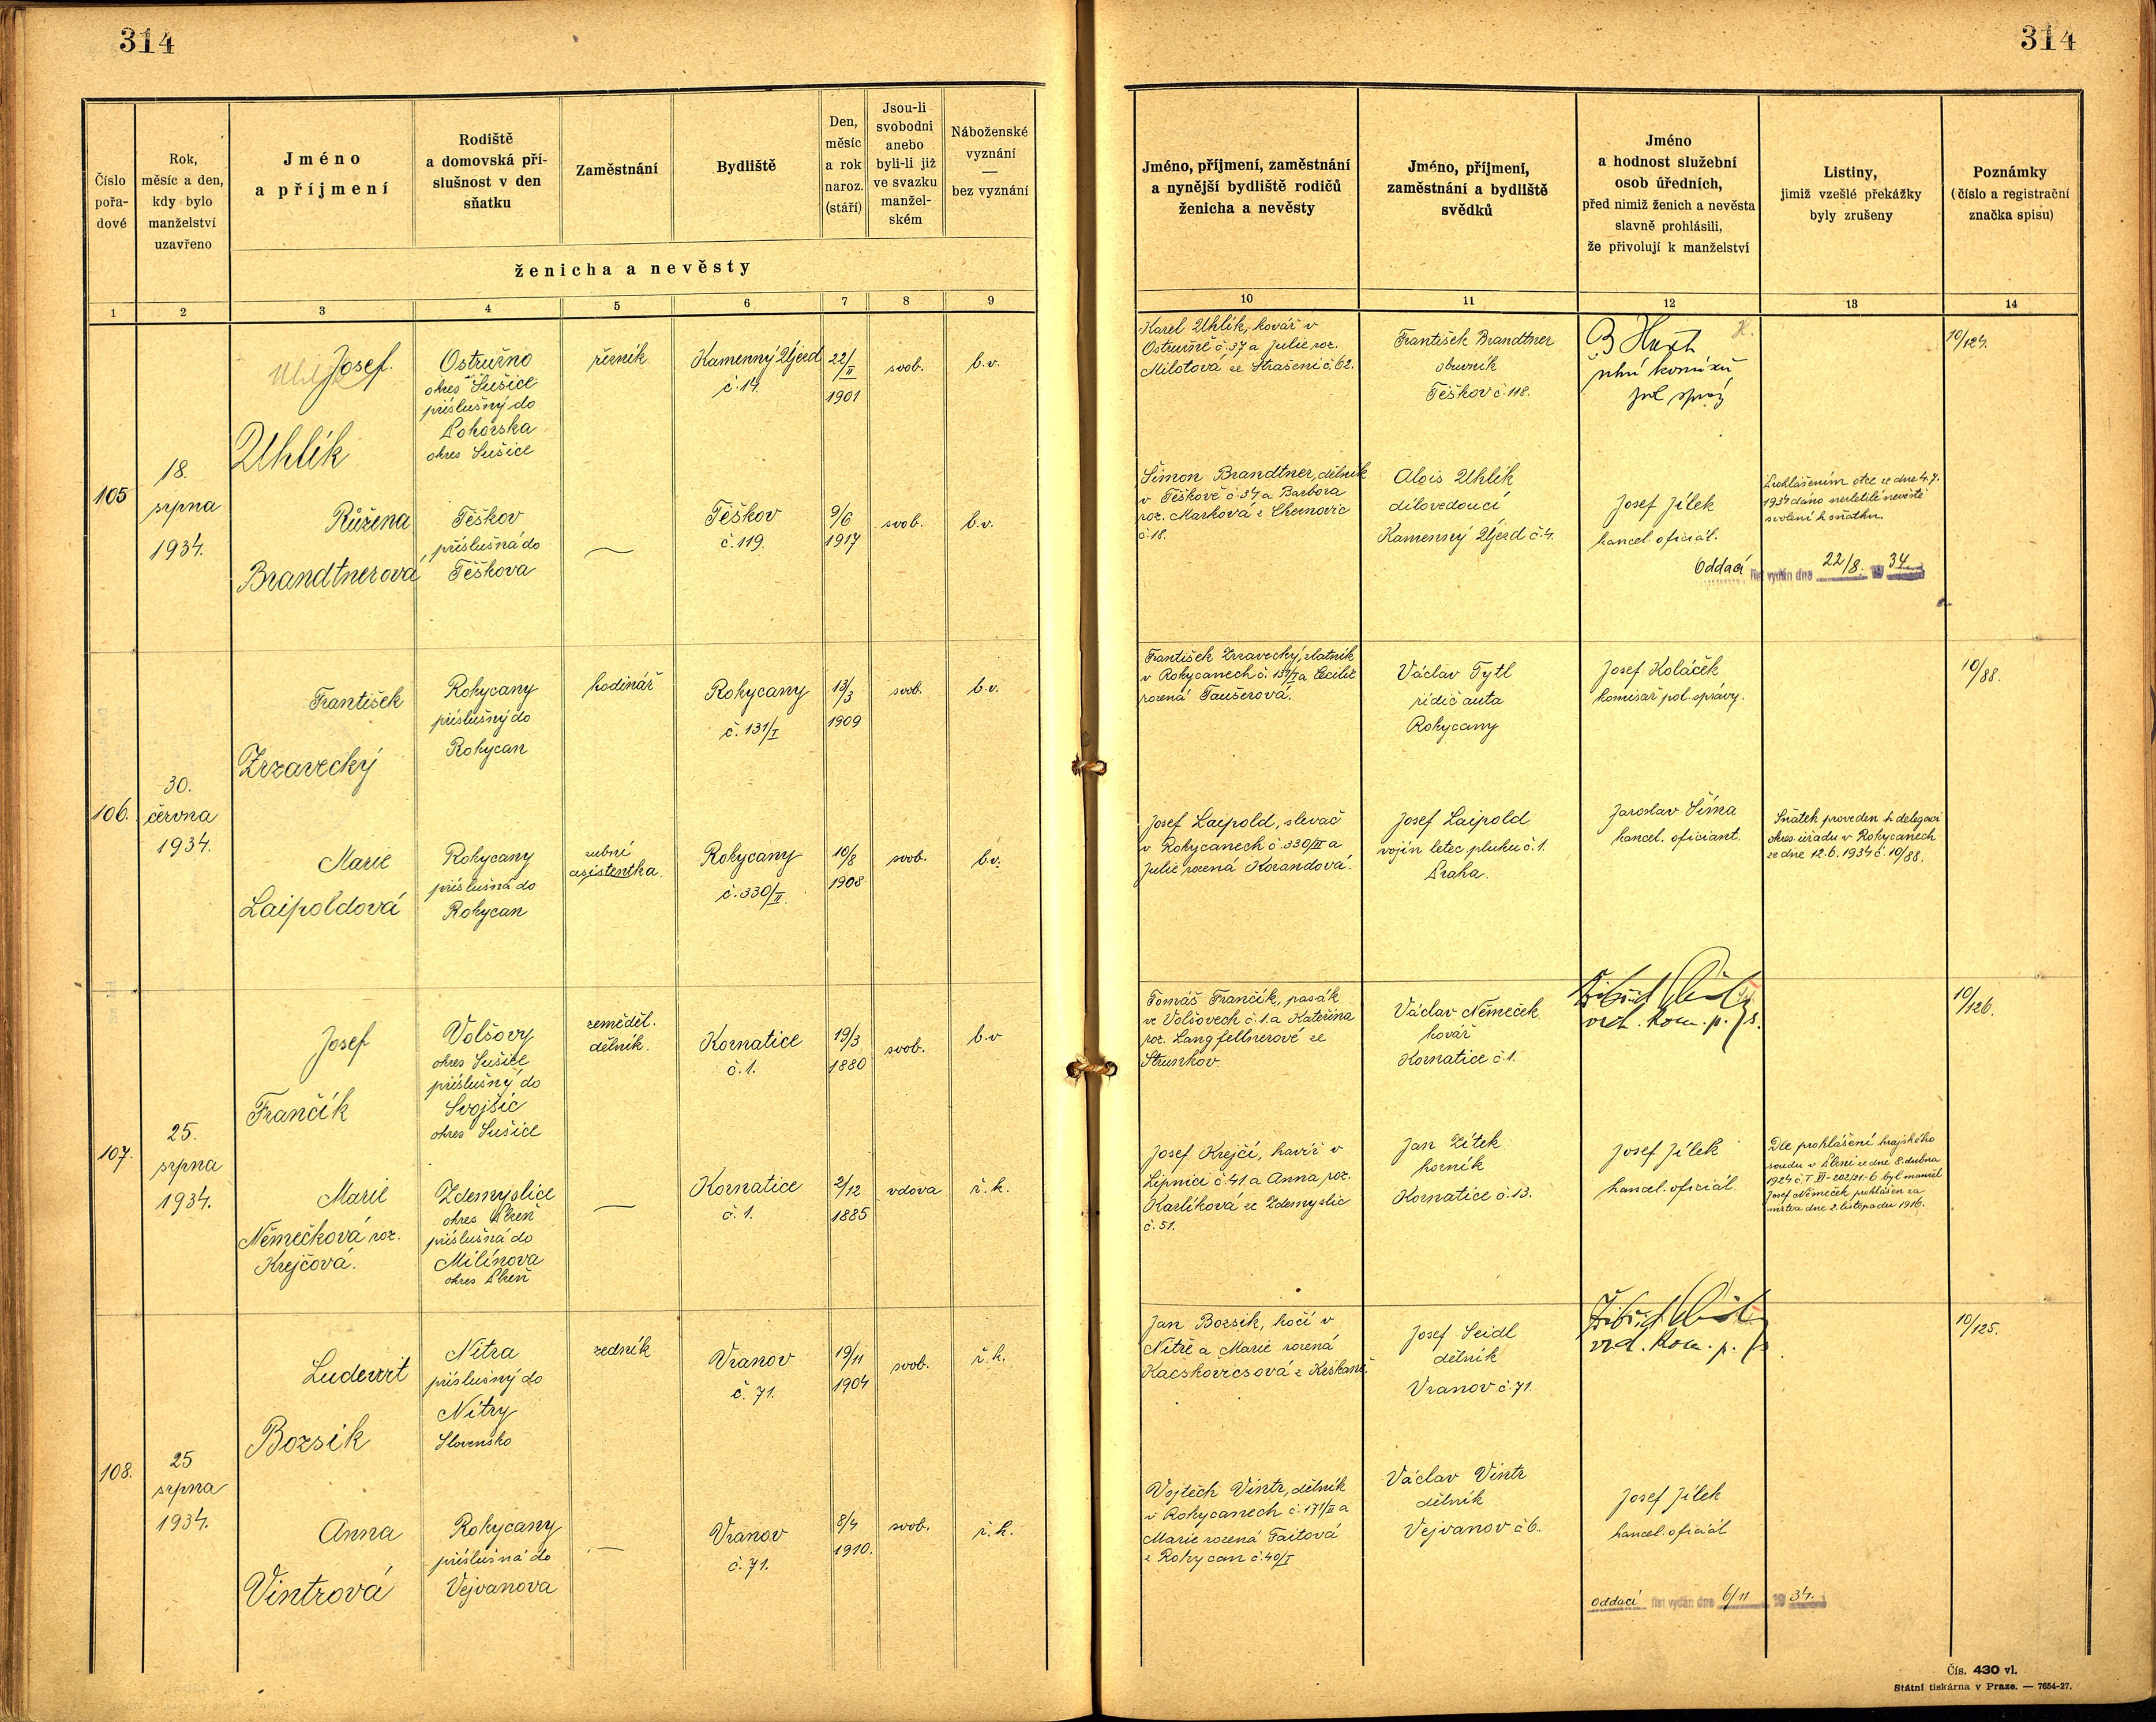 314
314
Číslo pořa-dové
Rok, měsíc a den, kdy bylo manželství uzavřeno
Jméno a příjmení
Rodiště a domovská pří-slušnost v den sňatku
Zaměstnání
Bydliště
Den, měsíc a rok naroz. (stáří)
Jsou-li svobodni anebo byli-li již ve svazku manžel-ském
Náboženské vyznání — bez vyznání
ženicha a nevěsty
1 2 3 4 5 6 7 8 9
Jméno, příjmení, zaměstnání a nynější bydliště rodičů ženicha a nevěsty
Jméno, příjmení, zaměstnání a bydliště svědků
Jméno a hodnost služební osob úředních, před nimiž ženich a nevěsta slavně prohlásili, že přivolují k manželství
Listiny, jimiž vzešlé překážky byly zrušeny
Poznámky (číslo a registrační značka spisu)
10 11 12 13 14
105
18.
srpna
1934.
Josef
Uhlík
Ostružno
okres Sušice
příslušný do
Pohorska
okres Sušice
řezník
Kamenný Újezd
č. 14.
22/II
1901
svob.
b.v.
Růžena
Brandtnerová
Těškov
příslušná do
Těškova
Těškov
č. 119.
9/6
1917
svob.
b.v.
Karel Uhlík, kovář v
Ostružně č. 37 a Julie roz.
Milotová ze Strašeni č. 62.
František Brandtner
obuvník
Těškov č. 118.
10/124.
Šimon Brandtner, dělník
v Těškově č. 34 a Barbora
roz. Marková z Chernovic
č. 18.
Alois Uhlík
dílovedoucí
Kamenný Újezd č. 4.
Josef Jílek
kancel. oficiál.
Prohlášením otce ze dne 4.7.
1934 dáno nezletilé nevěstě
svolení k sňatku.
Oddací list vydán dne 22/8. 19 34.
106.
30.
června
1934.
František
Zrzavecký
Rokycany
příslušný do
Rokycan
hodinář
Rokycany
č. 131/I
13/3
1909
svob.
b.v.
Marie
Laipoldová
Rokycany
příslušná do
Rokycan
zubní
asistentka.
Rokycany
č. 330/II.
10/8
1908
svob.
b.v.
František Zrzavecký, zlatník
v Rokycanech č. 131/I a Cecilie
rozená Taušerová.
Václav Tytl
řidič auta
Rokycany
Josef Koláček
komisař pol. správy.
10/88.
Josef Laipold, slevač
v Rokycanech č. 330/II a
Julie rozená Korandová.
Josef Laipold
vojín letec. pluku č. 1.
Praha.
Jaroslav Šíma
kancel. oficiant.
Sňatek proveden k delegaci
okres. úřadu v Rokycanech
ze dne 12.6.1934 č. 10/88.
107.
25.
srpna
1934.
Josef
Frančík
Volšovy
okres Sušice
příslušný do
Svojšic
okres Sušice
zeměděl.
dělník.
Kornatice
č. 1.
19/3
1880
svob.
b.v
Marie
Němečková roz.
Krejčová.
Zdemyslice
okres Plzeň
příslušná do
Milínova
okres Plzeň
Kornatice
č. 1.
2/12
1885
vdova
ř.k.
Tomáš Frančík, pasák
ve Volšovech č. 1. a Kateřina
roz. Langfellnerové ze
Strunkov.
Václav Němeček
kovář
Kornatice č. 1.
vrch. kom. p. s.
10/126.
Josef Krejčí, havíř v
Lipnici č. 41 a Anna roz.
Karlíková ze Zdemyslic
č. 51.
Jan Zítek
horník
Kornatice č. 13.
Josef Jílek
kancel. oficiál
Dle prohlášení krajského
soudu v Plzni ze dne 8. dubna
1924 č. T VI-202/21-6 byl manžel
Josef Němeček prohlášen za
mrtva dne 2. listopadu 1916.
108.
25
srpna
1934.
Ludevvít
Bozsik
Nitra
příslušný do
Nitry
Slovensko
zedník
Vranov
č. 71.
19/11
1904
svob.
ř.k.
Anna
Vintrová
Rokycany
příslušná do
Vejvanova
Vranov
č. 71.
8/4
1910.
svob.
ř.k.
Jan Bozsik, kočí v
Nitře a Marie rozená
Kacskovicsová z Krškan
Josef Seidl
dělník
Vranov č. 71.
10/125.
Vojtěch Vintr, dělník
v Rokycanech č. 171/II a
Marie rozená Faitová
z Rokycan č. 40/I
Václav Vintr
dělník
Vejvanov č. 6.
Josef Jílek
kancel. oficiál
Oddací list vydán dne 6/11 19 34.
Čís. 430 vl.
Státní tiskárna v Praze. — 7654-27.